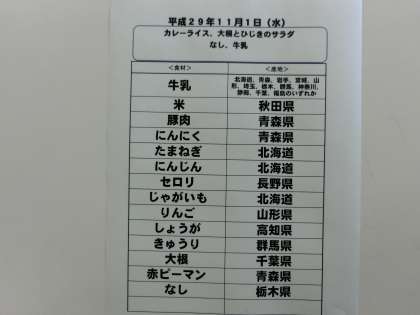 平成29年11月1日（水）
カレーライス、大根とひじきのサラダ
なし、牛乳
＜食材＞ ＜産地＞
牛乳 北海道、青森、岩手、宮城、山
形、埼玉、栃木、群馬、神奈川、
静岡、千葉、福島のいずれか
米 秋田県
豚肉 青森県
にんにく 青森県
たまねぎ 北海道
にんじん 北海道
セロリ 長野県
じゃがいも 北海道
りんご 山形県
しょうが 高知県
きゅうり 群馬県
大根 千葉県
赤ピーマン 青森県
なし 栃木県